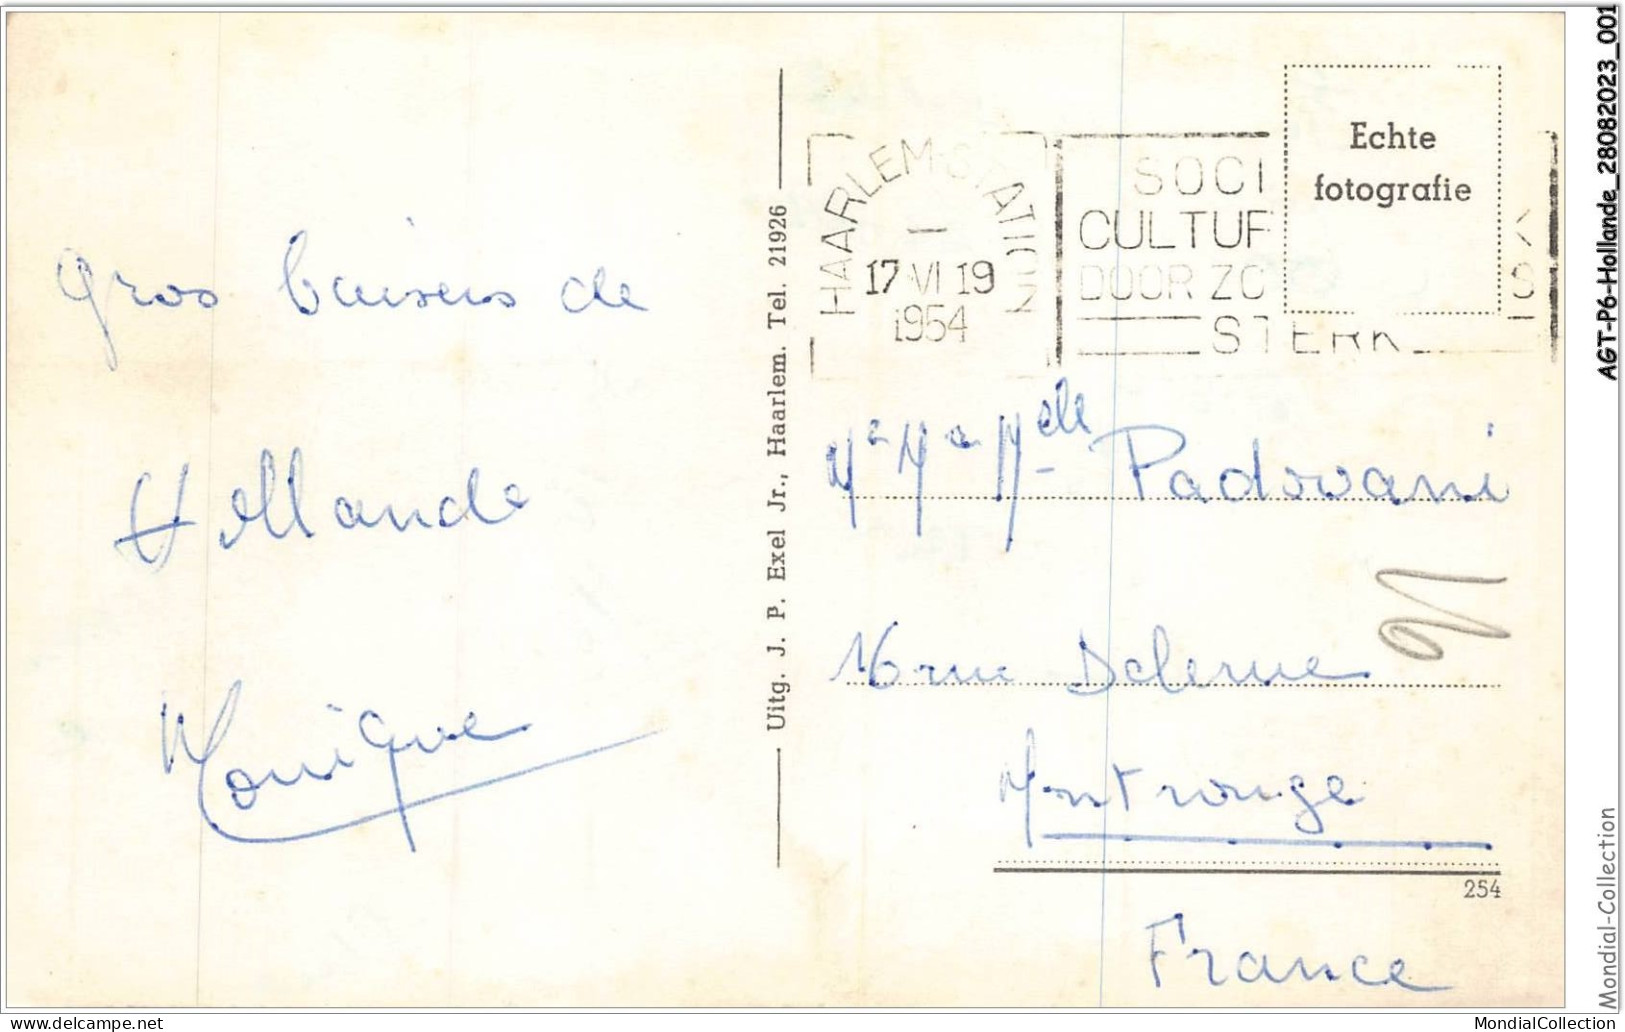 gros baisers de
Hollande
Monique
Uitg. J. P. Exel Jr., Haarlem. Tel. 21926
HAARLEM-STATION
17 VI 19
1954
SOCI
CULTUR
DOOR ZO S
STERK
Echte
fotografie
Mr Me Melle Padovani
16 rue Delerue
Montrouge
254
France
AGT-P6-Hollande_28082023_001
Mondial-Collection
delcampe.net
MondialCollection